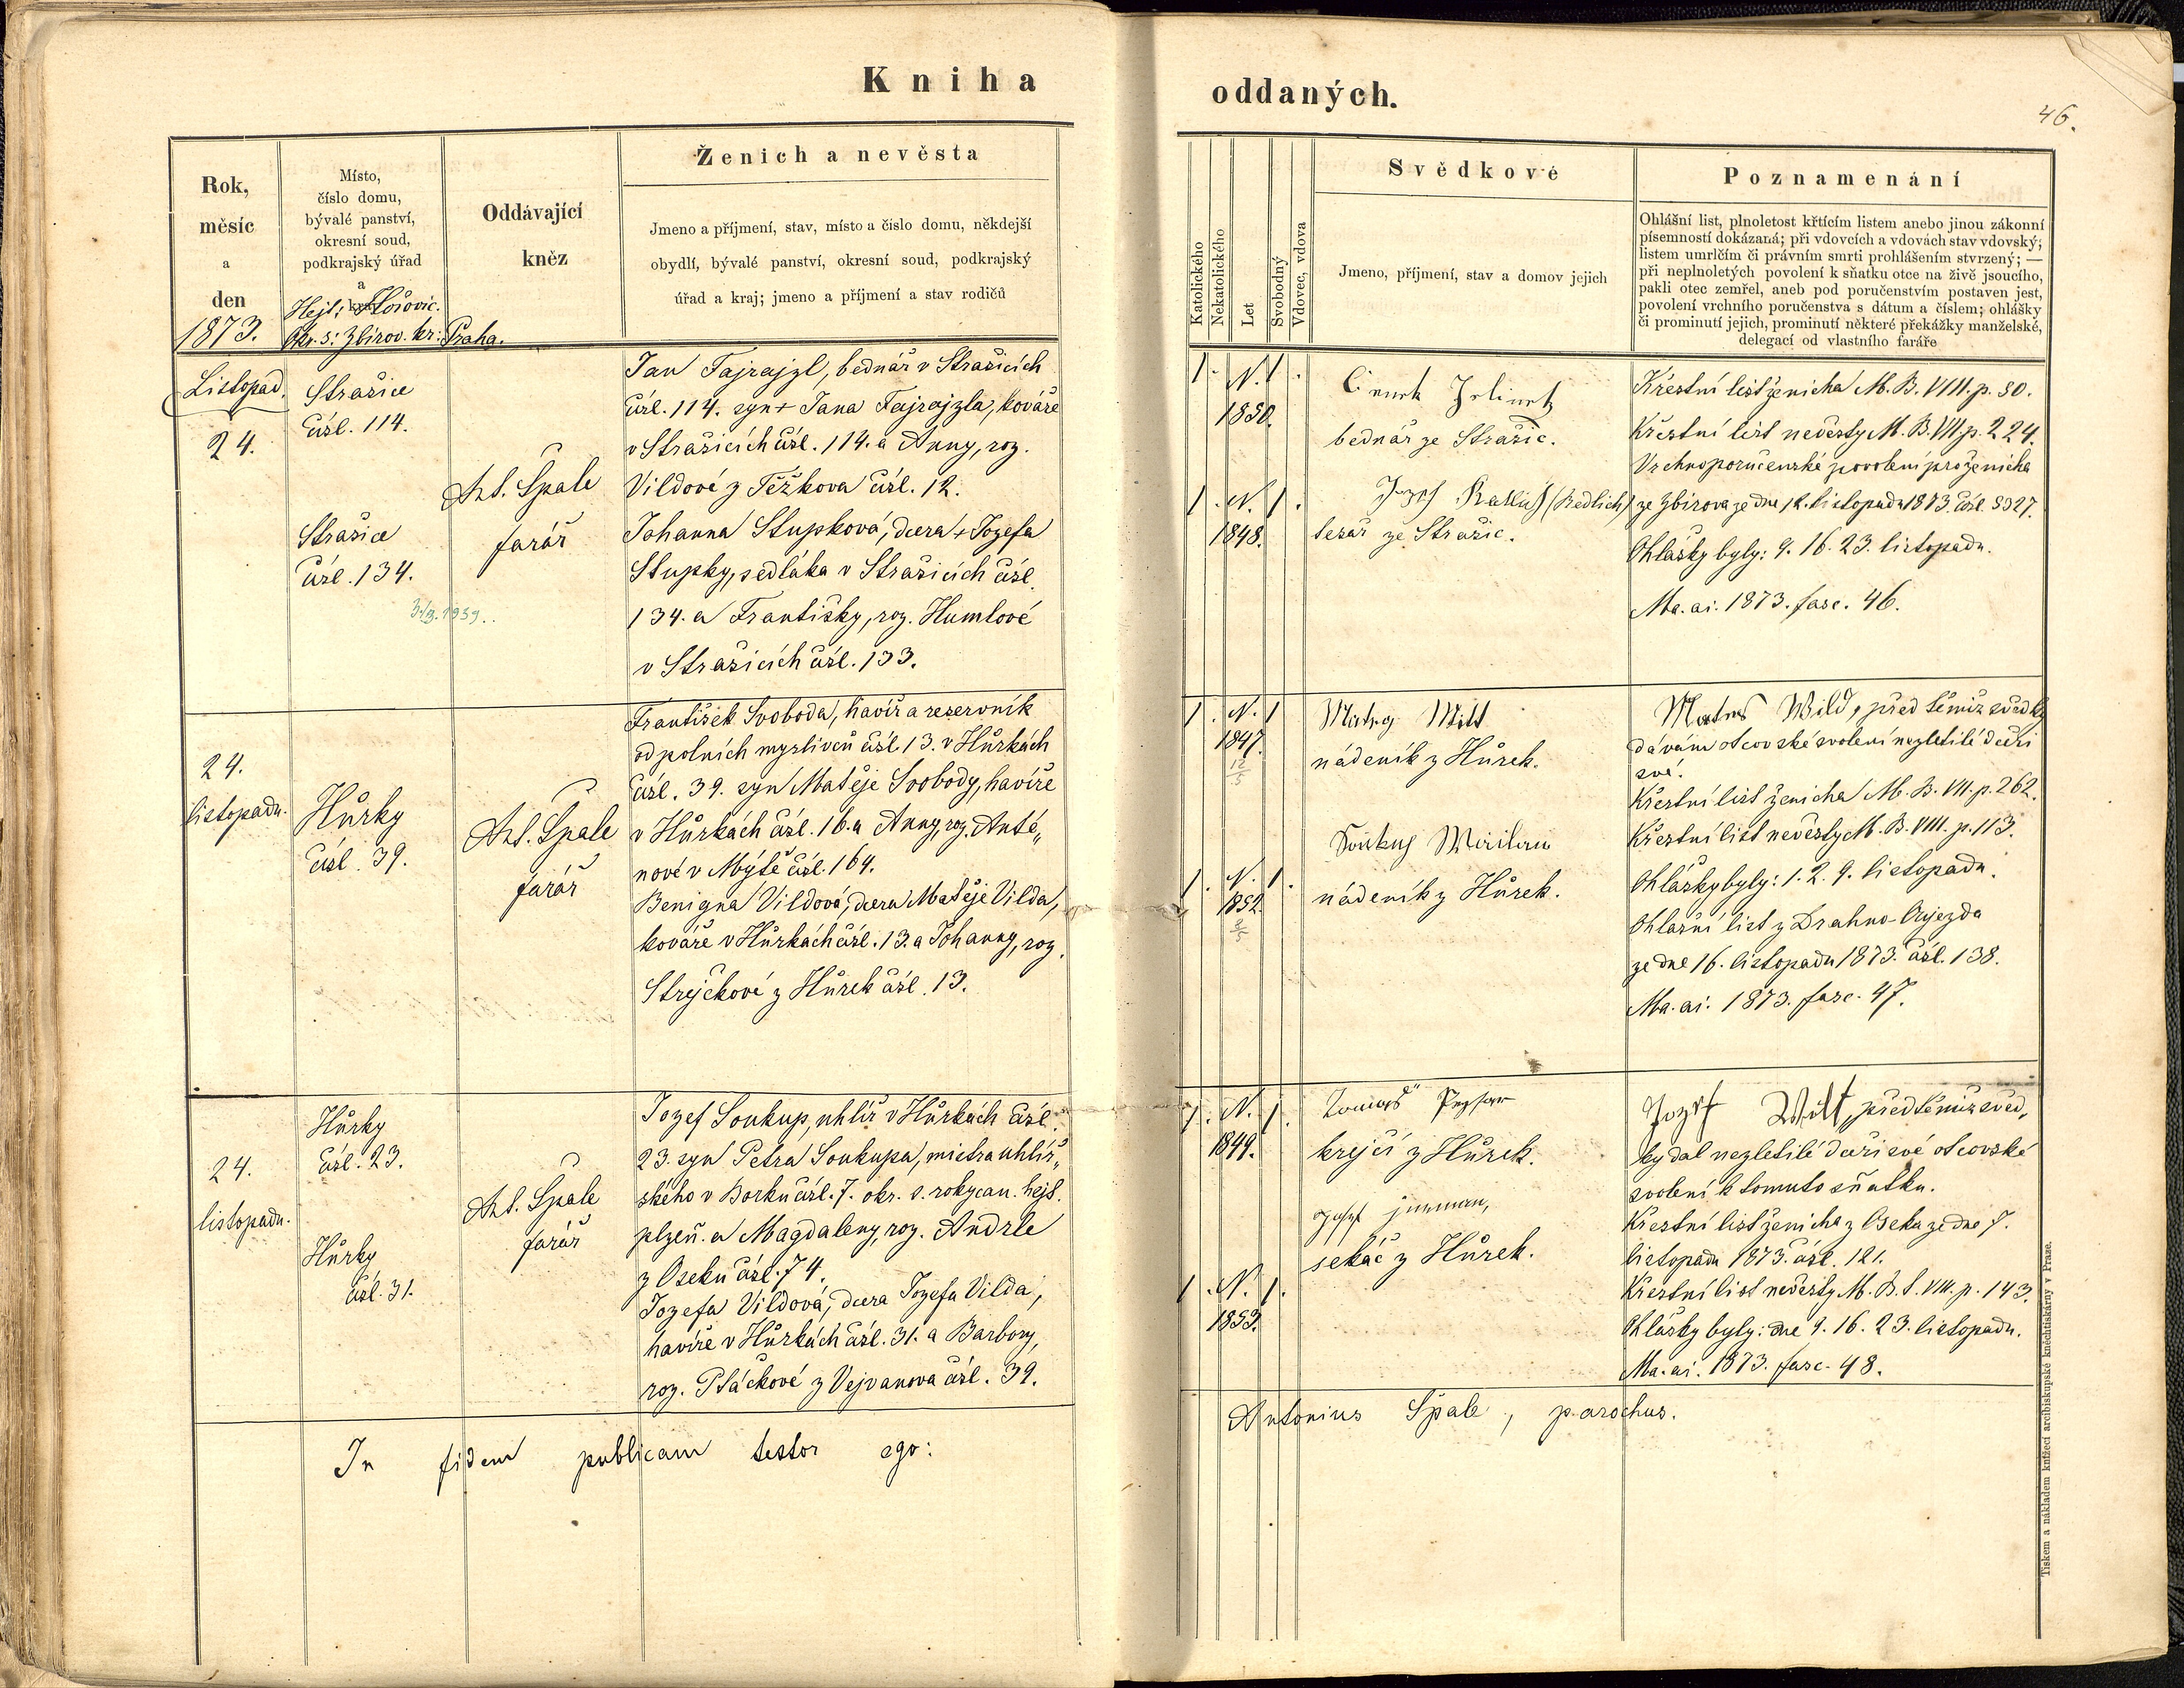 Kniha
oddaných.
46.
Rok,
měsíc
a
den
1873.
Místo,
číslo domu,
bývalé panství,
okresní soud,
podkrajský úřad
a
Hejt: Hořovic.
Okr. s: Zbirov. kr: Praha.
Oddávající
kněz
Ženich a nevěsta
Jmeno a příjmení, stav, místo a číslo domu, někdejší
obydlí, bývalé panství, okresní soud, podkrajský
úřad a kraj; jmeno a příjmení a stav rodičů
Katolického
Nekatolického
Let
Svobodný
Vdovec, vdova
Svědkové
Jmeno, příjmení, stav a domov jejich
Poznamenání
Ohlášní list, plnoletost křtícím listem anebo jinou zákonní
písemností dokázaná; při vdovcích a vdovách stav vdovský;
listem umrlčím či právním smrti prohlášením stvrzený; —
při neplnoletých povolení k sňatku otce na živě jsoucího,
pakli otec zemřel, aneb pod poručenstvím postaven jest,
povolení vrchního poručenstva s dátum a číslem; ohlášky
či prominutí jejich, prominutí některé překážky manželské,
delegací od vlastního faráře
Listopad.
24.
Strašice
čísl. 114.
Strašice
čísl. 134.
Ant. Špale
farář
Jan Fajrajzl, bednář v Strašicích
čísl. 114. syn + Jana Fajrajzla, kováře
v Strašicích čísl. 114. a Anny, roz.
Vildové z Těžkova čísl. 12.
Johanna Stupková, dcera + Jozefa
Stupky, sedláka v Strašicích čísl.
134. a Františky, roz. Humlové
v Strašicích čísl. 133.
1. N. 1.
1850.
1. N. 1.
1848.
bednář ze Strašic.
(Redlich)
tesař ze Strašic.
Křestní list ženicha M. B. VIII. p. 80.
Křestní list nevěsty M. B. VII. p. 224.
Vrchnoporučenské povolení pro ženicha
ze Zbirova ze dne 12. listopadu 1873. čísl. 8327.
Ohlášky byly: 9. 16. 23. listopadu.
Ma. ai. 1873. fasc. 46.
24.
listopadu.
Hůrky
čísl. 39.
Ant. Špale
farář
František Svoboda, havíř a reservník
od polních myslivců čísl. 13. v Hůrkách
čísl. 39. syn Matěje Svobody, havíře
v Hůrkách čísl. 16. a Anny, roz. Antě„
nové v Mýtě čísl. 164.
Benigna Vildová, dcera Matěje Vilda,
kováře v Hůrkách čísl. 13. a Johanny, roz.
Strejčkové z Hůrek čísl. 13.
1. N. 1
1847.
12/5
1. N. 1.
1852.
nádeník z Hůrek.
nádeník z Hůrek.
Wild, před těmiž svědky
dávám otcovské svolení nezletilé dceři
své.
Křestní list ženicha M. B. VII. p. 262.
Křestní list nevěsty M. B. VIII. p. 113.
Ohlášky byly: 1. 2. 9. listopadu.
Ohlášní list z Drahno-Oujezda
ze dne 16. listopadu 1873. čísl. 138.
Ma. ai. 1873. fasc. 47.
24.
listopadu.
Hůrky
čísl. 23.
Hůrky
čísl. 31.
Ant. Špale
farář
Jozef Soukup, uhlíř v Hůrkách čísl.
23. syn Petra Soukupa, mistra uhlíř„
ského v Borku čísl. 7. okr. s. rokycan. hejt.
plzeň. a Magdaleny, roz. Andrle
z Oseku čísl. 74.
Jozefa Vildová, dcera Jozefa Vilda,
havíře v Hůrkách čísl. 31. a Barbory,
roz. Ptáčkové z Vejvanova čísl. 39.
1. N. 1.
1849.
1. N. 1.
1853.
krejčí z Hůrek.
sekáč z Hůrek.
Jozef Wilt, před těmiž svěd„
ky dal nezletilé dceři své otcovské
svolení k tomuto sňatku.
Křestní list ženicha z Oseka ze dne 7.
listopadu 1873. čísl. 121.
Křestní list nevěsty M. B. S. VIII. p. 143.
Ohlášky byly: dne 9. 16. 23. listopadu.
Ma. ai. 1873. fasc. 48.
In fidem publicam testor ego:
Antonius Špale, parochus.
Tiskem a nákladem knížecí arcibiskupské knihtiskárny v Praze.